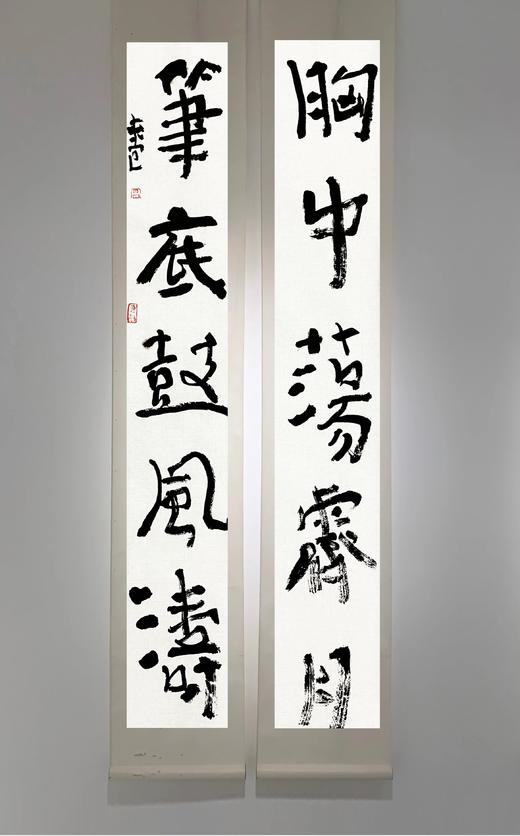 胸中荡霽月
筆底鼓風濤